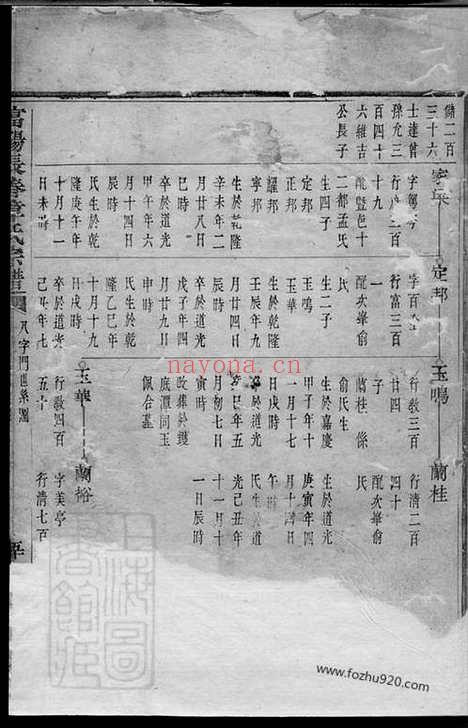 儲二百
三十六
士達曾
孫尤三
百四十
六維吉
公長子
宏长
字寧岑
行虔三百
十九
配豎包十
二都孟氏
生四子
定邦
正邦
耀邦
寧邦
生於乾隆
辛未年二
月廿八日
巳時
卒於道光
甲午年六
月十四日
辰時
氏生於乾
隆庚午年
十月十一
日未時
定邦
字百
行富三百
一
配次峯俞
氏
生二子
玉鳴
玉華
生於乾隆
壬辰年九
月廿四日
辰時
卒於道光
戊子年四
月廿九日
申時
氏生於乾
隆乙巳年
十月十九
日戌時
卒於道光
玉鳴
行敎三百
廿四
蘭桂 條
子
俞氏生
生於嘉慶
甲子年十
一月十七
日戌時
卒於道光
癸巳年五
月初七日
寅時
改葬於護
底潭同玉
佩合墓
玉華
行敎四百
五十
蘭桂
行清二百
四十
配次峯俞
氏
生於道光
庚寅年四
月十四日
午時
氏生於道
光己丑年
十一月十
一日辰時
蘭裕
字美亭
行清七百
富陽長春章氏宗譜
八字門世系圖
nayona.cn
www.fozhu920.com